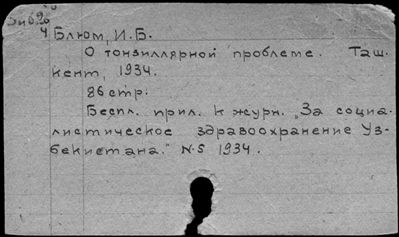 4 Блюм, И.Б.
О тонзиллярной проблеме. Таш.
кент, 1934.
86 стр.
Беспл. прил. к журн. „За социа-
листическое здравоохранение Уз-
бекистана." N.5 1934.